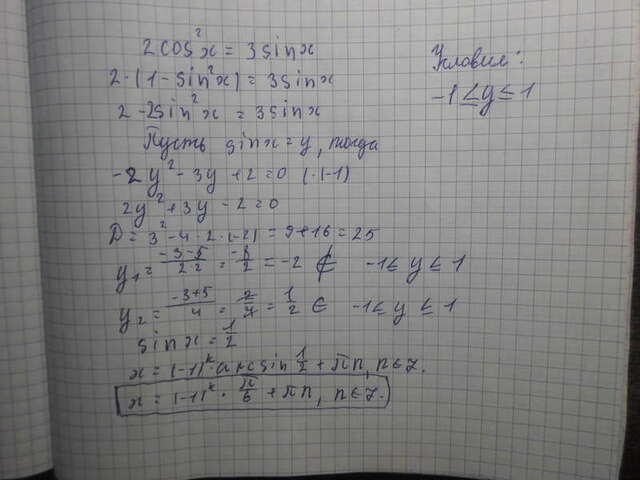 2cos²x = 3sinx
Условие:
2·(1-sin²x) = 3sinx
-1 ≤ y ≤ 1
2-2sin²x = 3sinx
Пусть sinx = y, тогда
-2y² - 3y + 2 = 0 (·(-1)
2y² + 3y - 2 = 0
D = 3² - 4·2·(-2) = 9+16 = 25
y₁ = (-3-5)/(2·2) = = -2 ∉ -1 ≤ y ≤ 1
y₂ = (-3+5)/4 = 2/4 = 1/2 ∈ -1 ≤ y ≤ 1
sinx = 1/2
x = (-1)ᵏ·arcsin 1/2 + πn, n∈Z.
x = (-1)ᵏ · π/6 + πn, n∈Z.